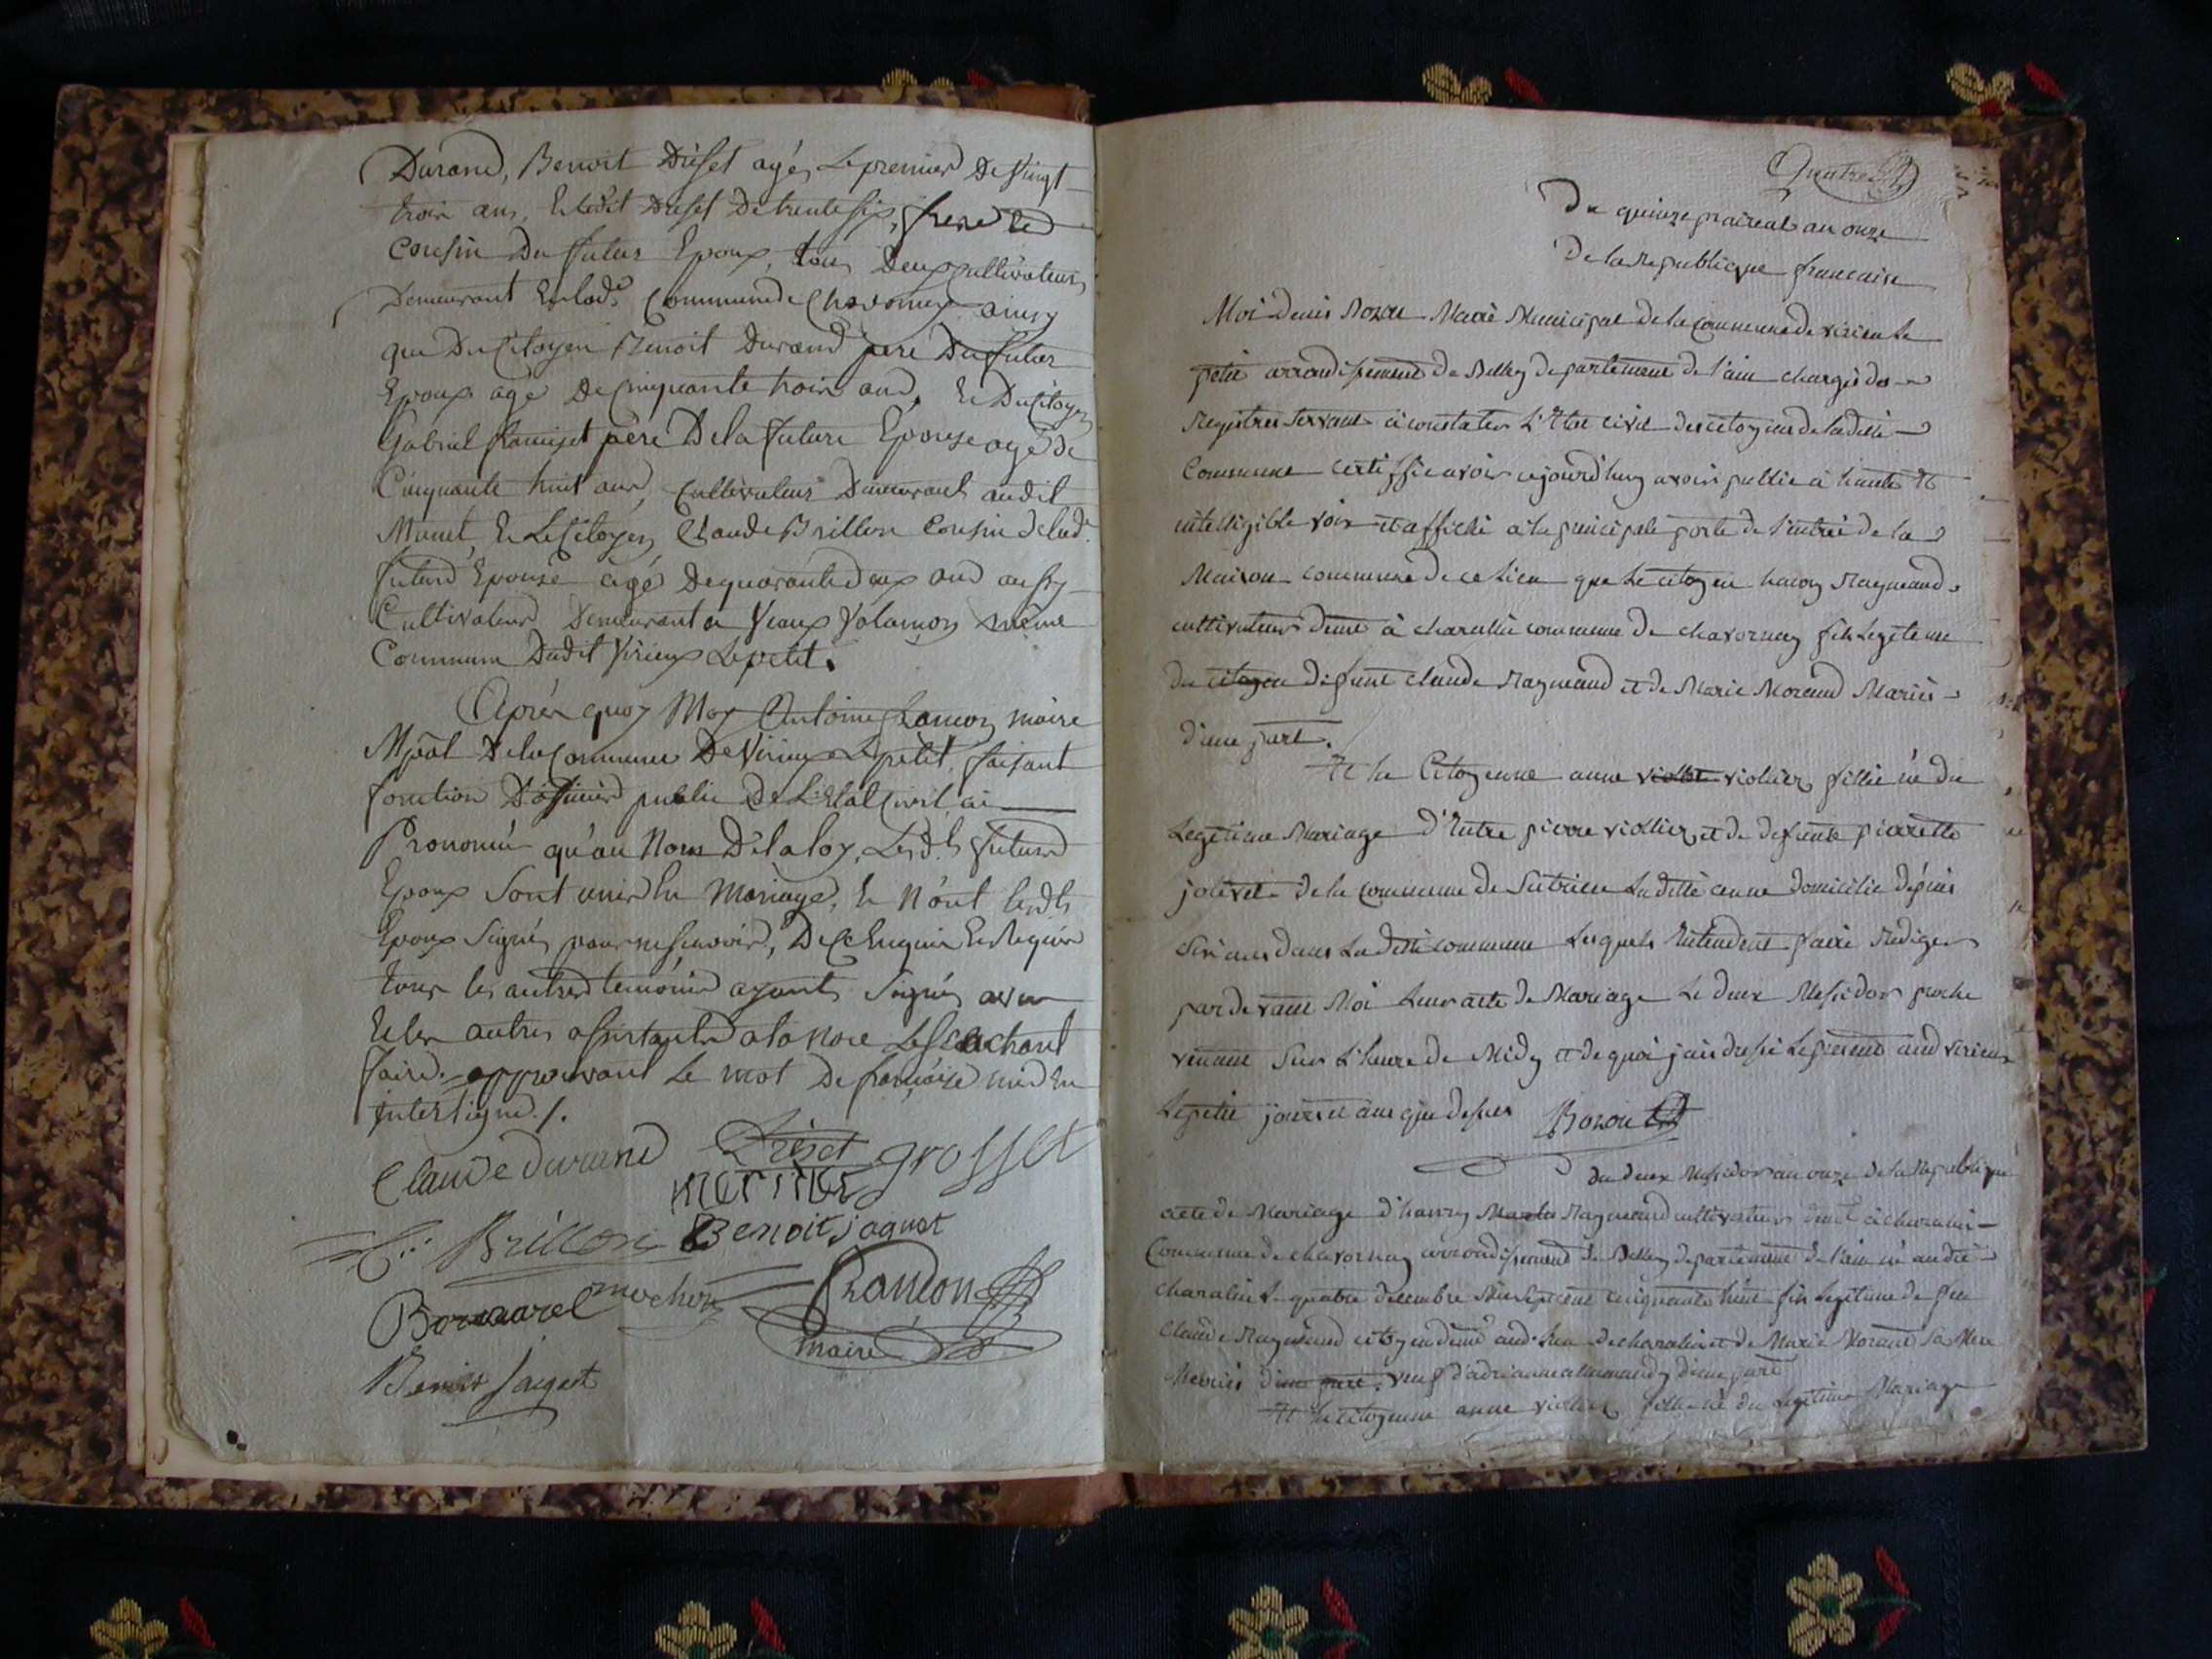 Durand, Benoit Druset agés, Le premier De Vingt
trois ans, Et ledit Druset De trente six, frere Et
Cousin Du futur Epoux, tous Deux cultivateurs
Demeurant En lade Commune de Chavornay, ainsy
que Du Citoyen Benoit Durand pere Du futur
Epoux agé De Cinquante trois ans, Et Du Citoyen
Gabriel père De la future Epouse agé de
Cinquante huit ans, Cultivateur Demeurant audit
Munet, Et Le Citoyen Claude Brillon Cousin de lade
future Epouse agé De quarante deux ans aussy
Cultivateur Demeurant a Vaux même
Commune Dudit Virieux Le petit.
Après quoy Moy Antoine maire
Mpāl De la Commune De Virieux Le petit, faisant
fonction D'officier public De L'Etat Civil ai
Prononcé qu'au Nom De la loy, Lesd.ts futurs
Epoux Sont unis En Mariage, Et N'ont lesdts
Epoux Signés pour ne scavoir, De ce Enquis Et Requis
tous les autres temoins ayants Signés avec
Et les autres assistants a la Noce Le Scachant
faire. approuvant Le mot De françoise mis En
interligne ./.
Claude durand Druset grosset
mermier
Brillon Benoit jaguet
Bornarel mochon
maire
Benoit jaiget
Quatre
Du quinze prairéal an onze
De la Republique francaise
Moi Denis Bozon Maire Municipal de la commune de virieu le
petit arrondissement de Belley departement de l'ain chargé des
Registres servant à constater L'Etat civil des citoyens de laditte
Commune certiffie avoir cejourd'huy avoir publié à haute Et
intelligible voix et affiché a la principale porte de l'entrée de la
Maison commune de ce Lieu que Le citoyen hanry Raymand
cultivateur demt à charaillin commune de chavornay fils Legitime
du citoyen defunt claude Raymand et de Marie Morand Mariés
d'une part.
Et la Citoyenne anne viollier fillie né du
Legitime Mariage d'Entre pierre viollier et de defunte pierrette
jolivet de la commune de Sutrieu Laditte anne domicilié depuis
Six ans dans Laditte commune Lesquels Entendent faire Rediger
pardevant Moi Leur acte de Mariage Le deux Messidor proche
venant Sur L'heure de Midy et de quoi j'ais dressé Le présent aud virieux
Le petit jour et an que dessus Bozon
du deux Messidor an onze de la Republique
acte de Mariage d'hanry Raymand cultivateur demt à charalin
Commune de chavornay arrondissement de Belley departement de l'ain né audit
charalin Le quatre decembre Mil Sept cent cinquante huit fils Legitime de feu
Claude Raymand citoyen demt aud. Lieu de charalin et de Marie Morand Sa Mere
Mariés d'une part. veuf d'adrianne d'une part
Et la citoyenne anne viollier fillie né du Legitime Mariage